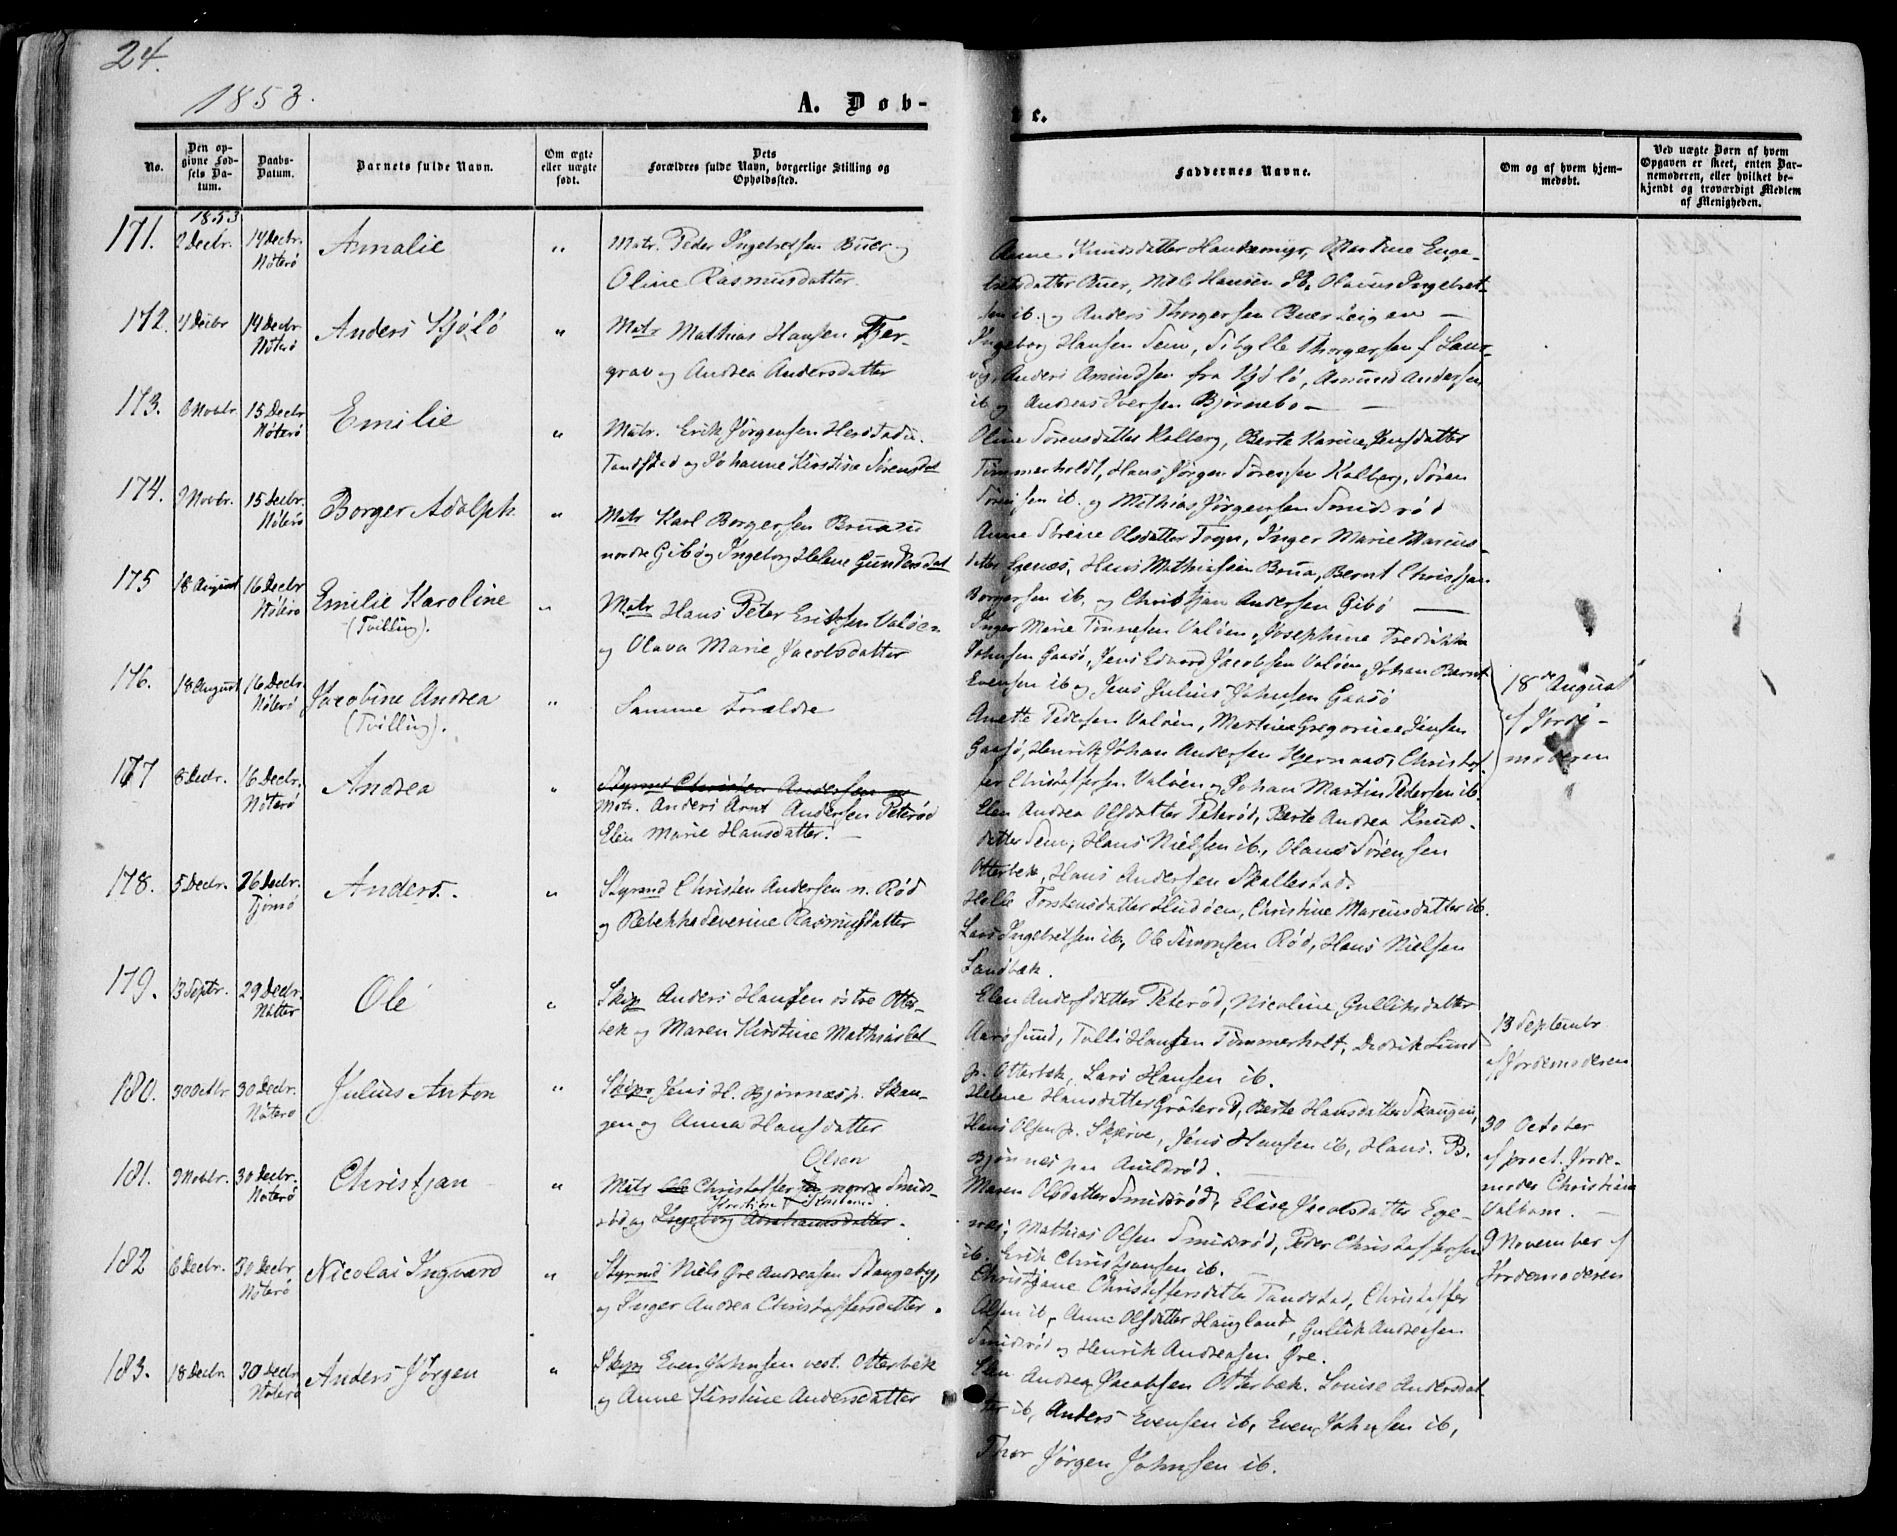 24.
1853.
A. Døb-
te.
No.
Den op-
givne Fød-
sels Da-
tum.
Daabs-
Datum.
Barnets fulde Navn.
Om ægte
eller uægte
født.
Dets
Forældres fulde Navn, borgerlige Stilling og
Opholdssted.
Faddernes Navne.
Om og af hvem hjem-
medøbt.
Ved uægte Børn af hvem
Opgaven er skeet, enten Bar-
nemoderen, eller hvilket be-
kjendt og troværdigt Medlem
af Menigheden.
1853
171. 2 Decbr. 14 Decbr. Nøterø Amalie " Matr. Peder Ingebretsen Buer og
Oline Rasmusdatter.
Anne Knudsdatter Martine Enge-
bretsdatter Buer, Niels Hansen ib, Olavus Ingebret-
sen ib. og Anders Thorgersen Buer Leigen —
172. 4 Decbr 14 Decbr Nøterø Anders Kjølø " Matr Mathias Hansen Bjer-
grav og Andrea Andersdatter
Ingeborg Hansen Sem, Sibylle Thorgersen f Laur-
vig, Anders Amundsen fra Kjølø, Amund Andersen
ib og Andreas Iversen Bjørnebo —
173. 6 Novbr. 15 Decbr Nøterø Emilie " Matr. Erik Jørgensen
Tandstad og Johanne Kirstine Sørensdat
Oline Sørensdatter Kalberg, Berte Karine Jensdatter
Tømmerholdt, Hans Jørgen Sørensen Kalberg, Søren
Sørensen ib. og Mathias Jørgensen Smidsrød
174. 9 Novbr. 15 Decbr. Nøterø Borger Adolph " Matr Karl Borgersen Brua u
nordre Gibø og Ingeborg Helene Gundersdat
Anne Sørine Olsdatter Togn, Inger Marie Marcus-
datter Egenæs, Hans Mathiasen Brua, Bernt Christjan
Borgersen ib. og Christjan Andersen Gibø —
175 18 August 16 Decbr Nøterø Emilie Karoline
(Tvilling). " Matr Hans Peter Eriksen Valøen
og Olava Marie Jacobsdatter
Inger Marie Tønnesen Valøen, Josephine Fredrikke
Johnsen Gaasø, Jens Edvard Jacobsen Valøen, Johan Bernt
Evensen ib og Jens Julius Johnsen Gaasø
176. 18 August 16 Decbr. Nøterø Jacobine Andrea
(Tvilling). " Samme Forældre
Anette Pedersen Valøen, Martine Gregorine Jensen
Gaasø, Henrik Johan Andersen Hjernaas, Christof-
fer Christoffersen Valøen og Johan Martin Pedersen ib.
18de August
af Jorde-
moderen
177 8 Decbr. 16 Decbr. Nøterø Andrea " Styrmd Christen Andersen
Matr. Anders Arnt Andersen Peterød
Elen Marie Hansdatter. —
Elen Andrea Olsdatter Peterød, Berte Andrea Knuds-
datter Sem, Hans Nielsen ib., Olaus Sørensen
Otterbek, Hans Andersen Skallestad.
178. 5 Decbr. 26 Decbr. Tjømø Anders. " Styrmd Christen Andersen n. Rød
og Rebekka Severine Rasmusdatter
Helle Torstensdatter Hudøen, Christine Marcusdatter ib.
Lars Ingebretsen ib, Ole Simonsen Rød, Hans Nielsen
Sandbæk.
179. 13 Septr. 29 Decbr. Nøtter Ole " Skip Anders Hansen østre Otter-
bek og Maren Kirstine Mathiasdat
Elen Andersdatter Peterød, Nicoline Gulliksdatter
Aarøsund, Tolli Hansen Tømmerholt, Dedrik Lund
p. Otterbek, Lars Hansen ib.
13 September
af Jordemoderen
180. 30 Octbr. 30 Decbr. Nøterø Julius Anton " Skipr Jens H. Bjønnes p. Skau-
gen og Anna Hansdatter
Helene Hansdatter Grøterød, Berte Hansdatter Skaugen,
Hans Olsen p. Skjerve, Jens Hansen ib, Hans. B.
Bjønnes paa Auldrød.
30 October
af pract. Jorde-
moder Christiane
Valbom. —
181. 9 Novbr. 30 Decbr. Nøterø Christjan " Matr Ole Christoffersen Olsen nordre Smids-
rød og Ingeborg Abrahamsdatter.
Maren Olsdatter Smidsrød, Elise Jacobsdatter Ege-
næs, Mathias Olsen Smidsrød, Peder Christoffersen
ib. Erik Christjansen ib.
9 November af
Jordemoderen
182 6 Decbr. 30 Decbr Nøterø Nicolai Ingvard " Styrmd Niels Øre Andreasen Skangeby,
og Inger Andrea Christoffersdatter.
Christjane Christoffersdatter Tandstad, Christoffer
Olsen ib, Anne Olsdatter Haugland, Gullik Andreasen
Smidsrød og Henrik Andreasen Øre.
183. 18 Decbr. 30 Decbr Nøterø Anders Jørgen " Skip Even Johnsen vest. Otterbek
og Anne Kirstine Andersdatter
Elen Andrea Jacobsen Otterbæk. Lovise Andersdat-
ter ib, Anders Evensen ib, Even Johnsen ib,
Thor Jørgen Johnsen ib.